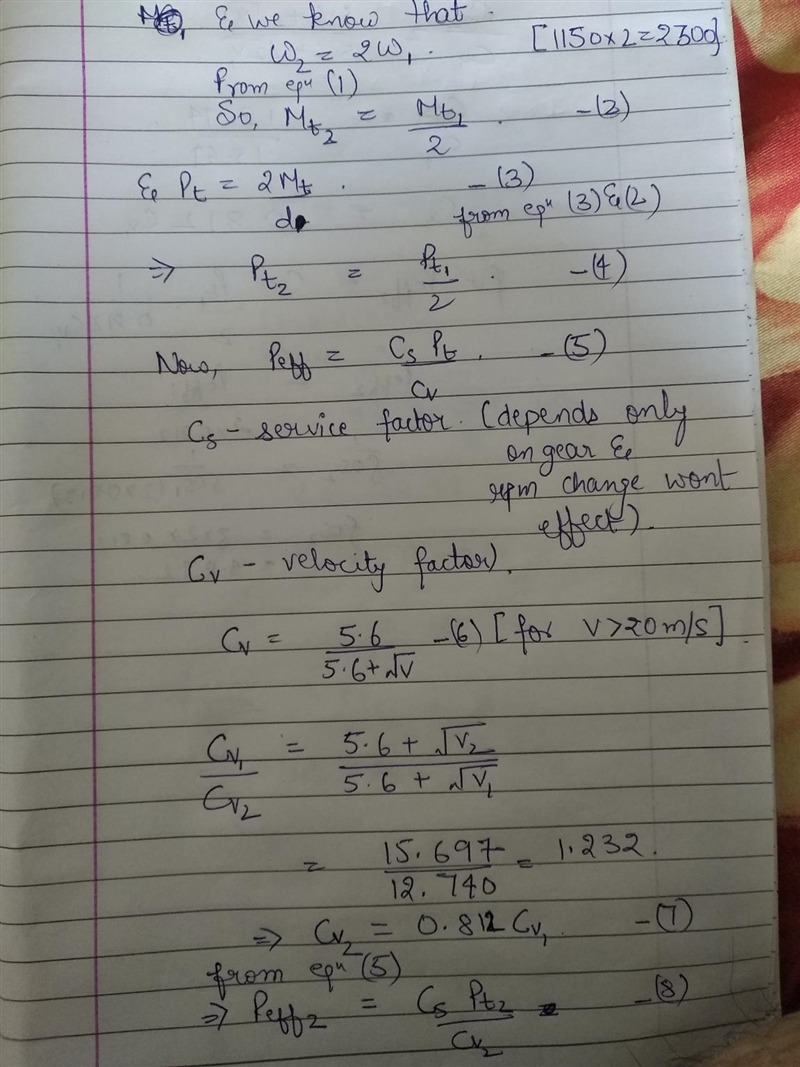 & we know that.
ω₂ = 2ω₁. [1150×2=2300]
From eqⁿ (1)
So, Mt₂ = Mt₁/2. -(2)
& Pt = 2Mt/d. -(3)
from eqⁿ (3) & (2)
⇒ Pt₂ = Pt₁/2. -(4)
Now, Peff = Cs Pt/Cv. -(5)
Cs - service factor. (depends only
on gear &
rpm change wont
effect).
Cv - velocity factor).
Cv = 5.6/(5.6+√v) -(6) [for V>20m/s].
Cv₁/Cv₂ = (5.6 + √v₂)/(5.6 + √v₁)
= 15.697/12.740 = 1.232.
⇒ Cv₂ = 0.812 Cv₁. -(7)
from eqⁿ (5)
⇒ Peff₂ = Cs Pt₂/Cv₂ -(8)